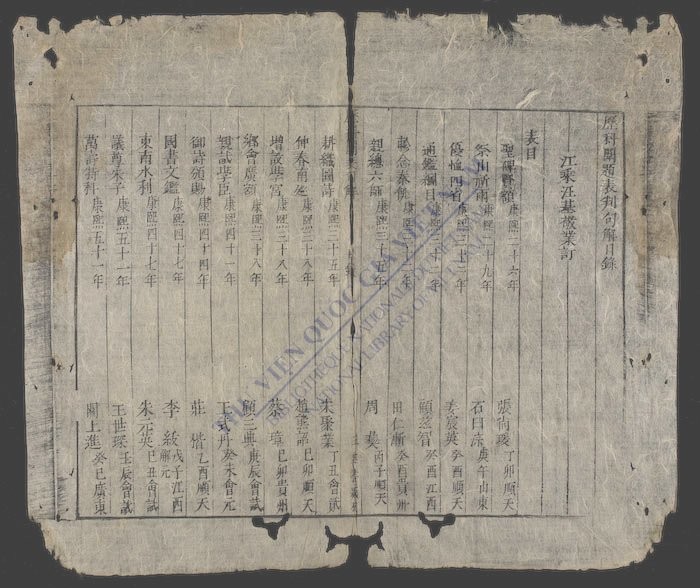 歷科闈題表判句解目錄
江乘汪基敬業訂
表目
聖碑賢額 康熙二十六年 張尚瑗 丁卯順天
祭川祈雨 康熙二十九年 石曰 庚午山東
優恤四省 康熙三十二年 姜宸英 癸酉順天
通鑑綱目 康熙三十二年 顧 智 癸酉江西
軫念春候 康熙 年 田仁 癸酉貴州
親總六師 康熙三十五年 周 丙子順天
耕織圖詩 康熙三十五年 朱 業 丁丑會試
仲春南巡 康熙三十八年 趙 己卯順天
增設學宮 康熙三十八年 蔡 己卯貴州
鄉會廣額 康熙三十八年 顧三典 庚辰會試
親試學臣 康熙四十一年 王式丹 癸未會元
御詩頒賜 康熙四十四年 莊楷 乙酉順天
國書文鑑 康熙四十七年 李紱 戊子江西解元
東南水利 康熙四十七年 朱元英 己丑會試
議尊朱子 康熙五十一年 王世琛 壬辰會試
萬壽新科 康熙五十一年 關上進 癸巳廣東
THƯ VIỆN QUỐC GIA VIỆT NAM
BIBLIOTHÈQUE NATIONALE DU VIETNAM
NATIONAL LIBRARY OF VIETNAM